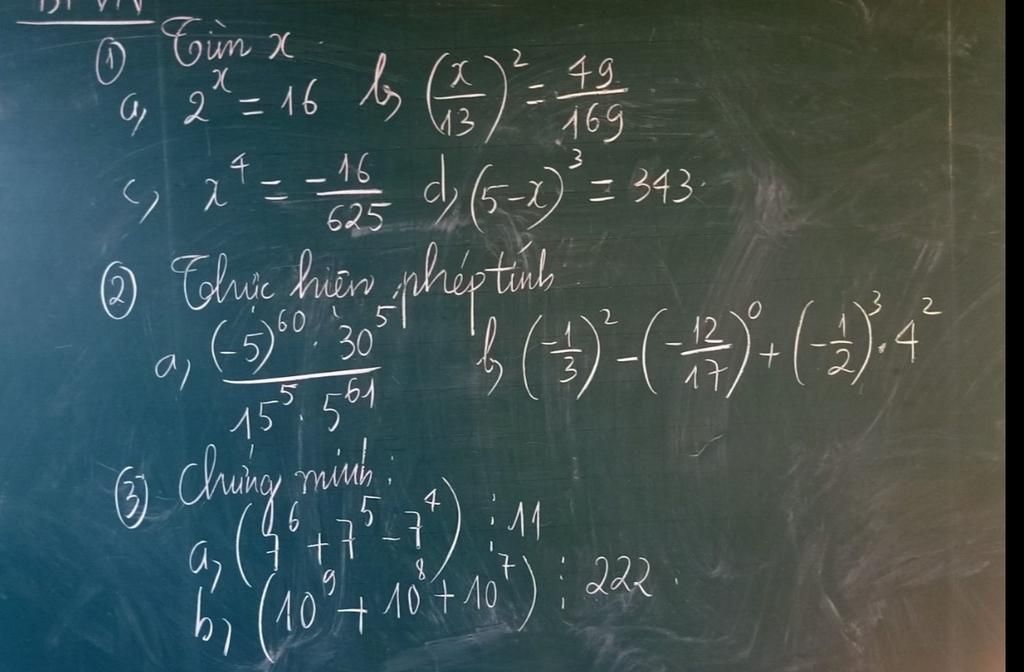 ① Tìm x
a, 2^x = 16 b, (x/13)^2 = 49/169
c, x^4 = -16/625 d, (5-x)^3 = 343.
② Thực hiện phép tính:
a, (-5)^60 . 30^5 / 15^5 . 5^61 b, (-1/3)^2 - (-12/17)^0 + (-1/2)^3 . 4^2
③ Chứng minh:
a, (7^6 + 7^5 - 7^4) ⋮ 11
b, (10^9 + 10^8 + 10^7) ⋮ 222.